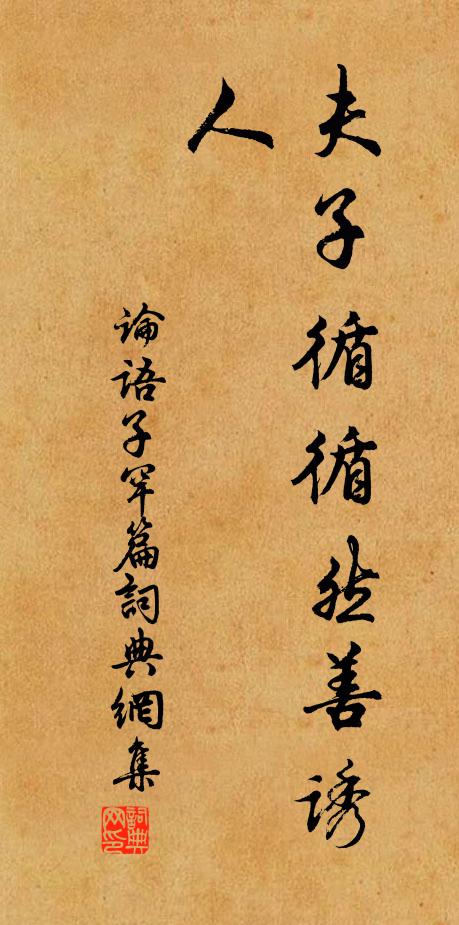 夫子循循然善誘
人
論語子罕篇詞典網集
詞典网印